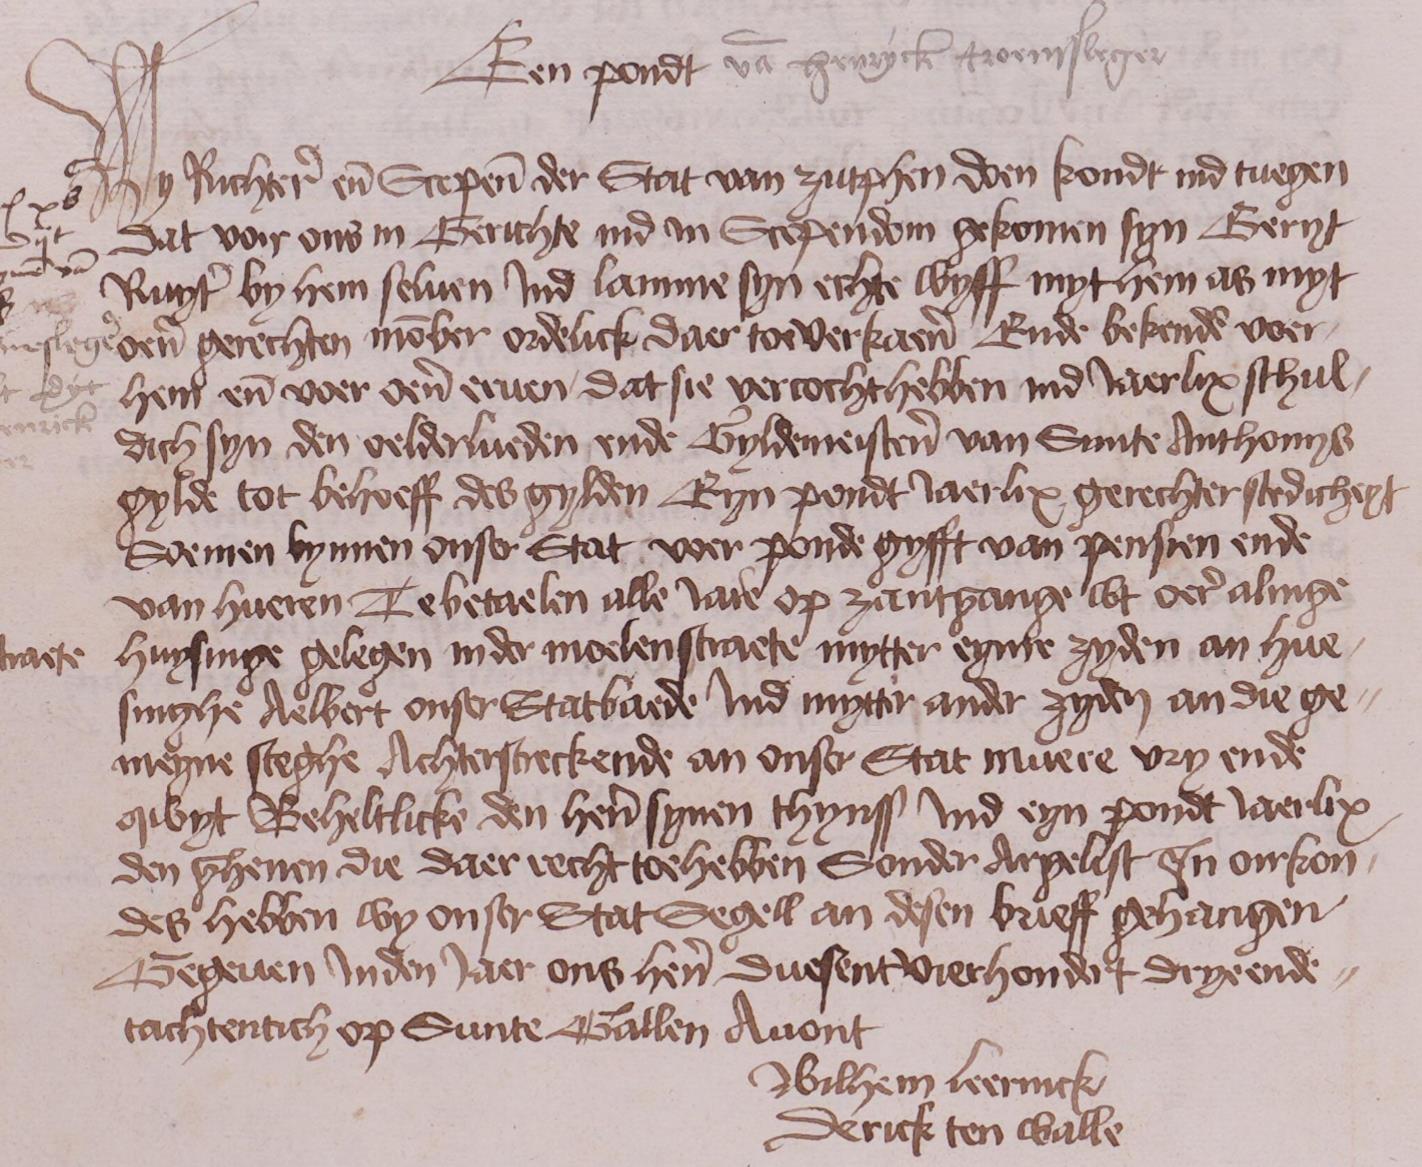 Een pondt vā henryck troemsleger
Wy Richter̄ en̄ Scepen̄ der Stat van zutphen doen kondt ind tuegen
dat voir ons in Gerichte ind in Scependom gekomen syn Geryt
Ruyt̄ by hem seluen Ind lamme syn echte wyff myt hem as myt
oen̄ gerechten mōber ordelick daer toe verkaen̄ Ende bekendē voer
hem en̄ voer oen̄ eruen dat sie vercocht hebben ind Jaerlix schul-
dich syn den oelderlueden ende Gyldemeisten̄ van Sunte Anthonys
gylde tot behoeff des gylden Eyn pondt Jaerlix gerechter stedichext
Soemen bynnen onser Stat voer ponde gyfft van pensien ende
van hueren Te betaelen alle Jare op zantgange wt oer̄ alinge
huysinge gelegen inder moelenstraete mytter eynre zyden an hue-
singhe Aelbert onser Statbaede Ind mytter ander zyden an die ge-
meyne steghe Achterstreckende an onser Stat muere vry ende
qwyt Beheltlicke den hen̄ synen thynss Ind eyn pondt Jaerlix
den ghenen die daer recht toe hebben Sonder Argelist In oirkon-
des hebben wy onser Stat Segell an desen brieff gehangen
Gegeuen Inden Jaer ons hen̄ duesent vierhondert drye ende
tachtentich op Sunte Gallen Auont
Wilhem leerinck
Derick ten walle
straete